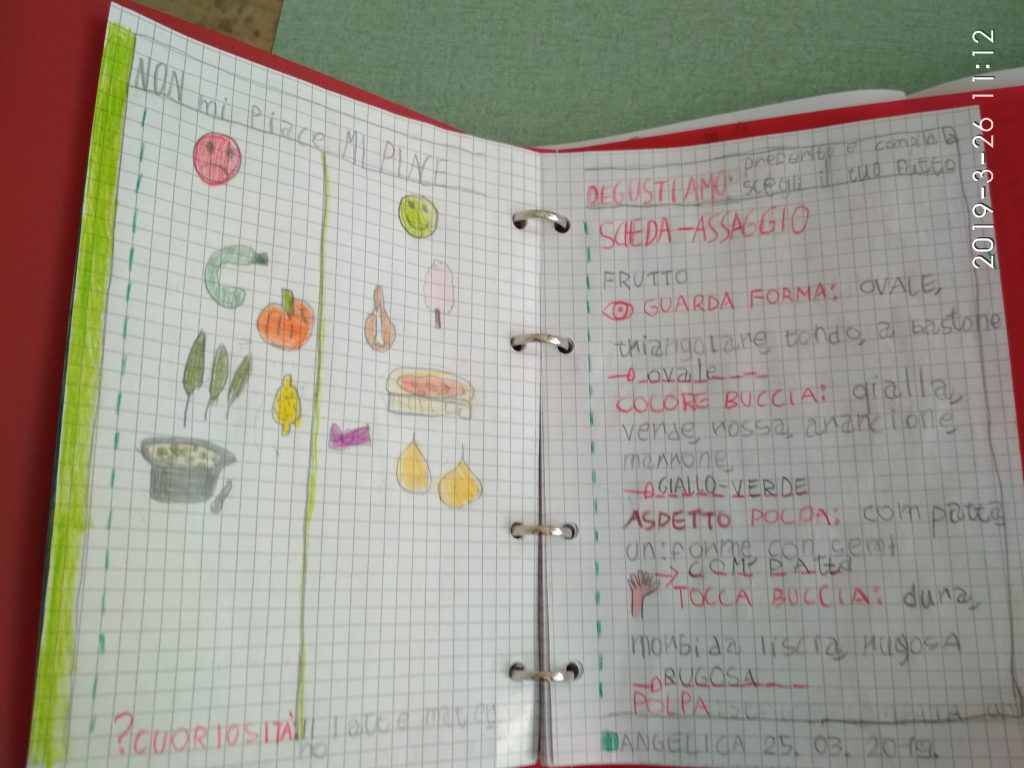 NON mi piace MI PIACE
?CUORIOSITÀ: Il latte
no
prepara e
DEGUSTIAMO: scegli il tuo frutto
SCHEDA-ASSAGGIO
FRUTTO
GUARDA FORMA: OVALE,
thiangolare, tondo, a bastone
→ ovale
COLORE BUCCIA: gialla,
verde, rossa, arancione,
marrone,
→ GIALLO-VERDE
ASPETTO POLPA: compatta
uniforme con semi
→ COMPATTA
TOCCA BUCCIA: dura,
morbida liscia, rugosa
→ RUGOSA
POLPA:
ANGELICA 25. 03. 2019.
2019-3-26 11:12